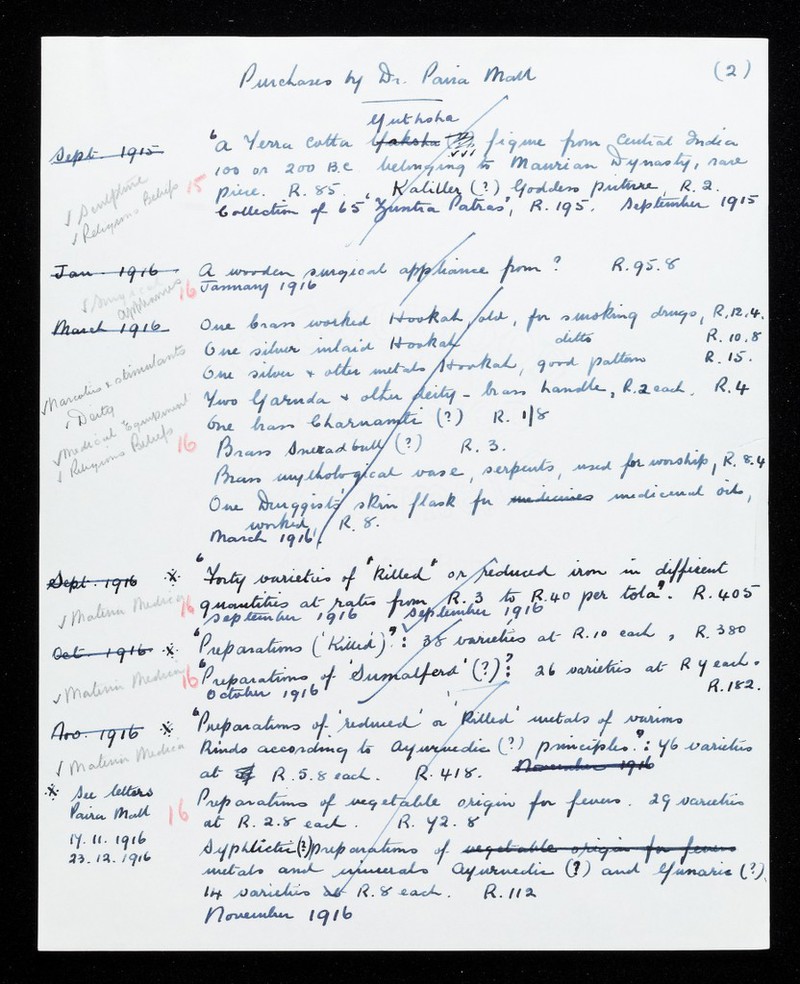 Purchases by Dr. Paira Mall (2)
Yuthsha
Sept. 1915 "A Terra Cotta Yaksha figure from Central India
100 or 200 B.C. belonging to Maurian Dynasty, rare
✓ Sculpture
15 piece. R.85. Kaliller (?) Goddess picture, R.2.
✓ Religious Beliefs
Collection of 65 'Yuntra Patras', R.195. September 1915
Jan. 1916 A wooden surgical appliance from? R.95.8
✓ Surgical appliances 16 January 1916
March 1916 One brass worked Hookah, old, for smoking drugs, R.12.4.
One silver inlaid Hookah ditto R.10.8
One silver & other metals Hookah, good pattern R.15.
✓ Narcotics & stimulants
Two Garuda & other deity - brass handle, R.2 each. R.4
✓ Deity
One brass Charnamti (?) R.1/8
✓ Medical Equipment
16 Brass Snezadbull (?) R.3.
✓ Religious Beliefs
Brass mythological vase, serpents, used for worship, R.8.4
One Druggists' skin flask for medicines medicinal oils,
worked, R.8.
March 1916.
Sept. 1916 ※ "Forty varieties of "Killed" or reduced iron in different
✓ Materia Medica 16 quantities at rates from R.3 to R.40 per tola". R.405
September 1916 September 1916
Oct. 1916 ※ "Preparations ('Killed')": 38 varieties at R.10 each, R.380
✓ Materia Medica 16 "Preparations of 'Sumalferd' (?)": 26 varieties at R 7 each.
October 1916 R.182.
Nov. 1916 ※ "Preparations of 'reduced' or 'Killed' metals of various
kinds according to Ayurvedic (?) principles": 76 varieties
✓ Materia Medica
at R.5.8 each. R.418. November 1916
※ See letters
Paira Mall
17.11.1916
23.12.1916
16 Preparations of vegetable origin for fevers. 29 varieties
at R.2.8 each. R.72.8
Syphlictic (?) preparations of vegetable origin for fevers
metals and minerals Ayurvedic (?) and Yunaric (?),
14 varieties at R.8 each. R.112
November 1916